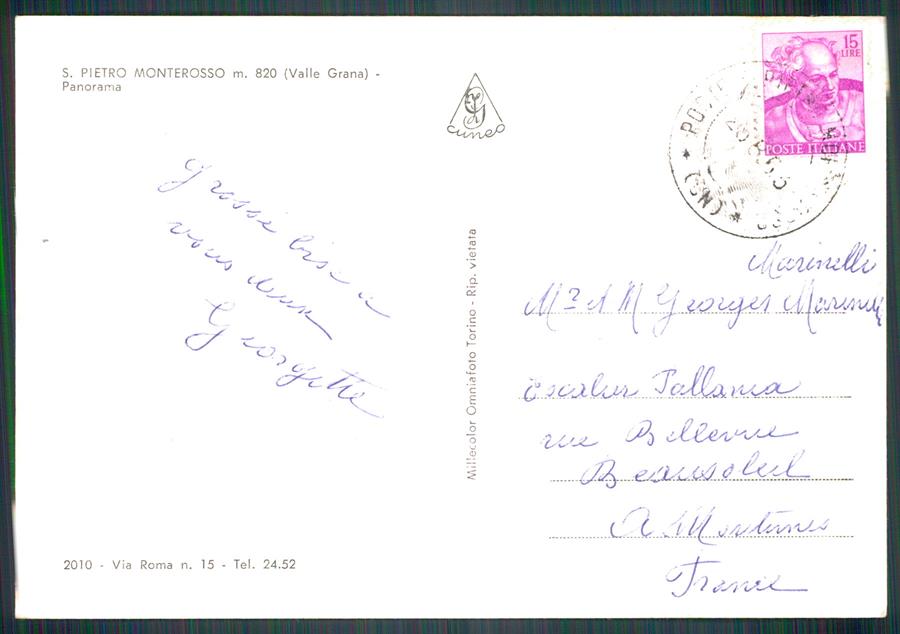 S. PIETRO MONTEROSSO m. 820 (Valle Grana) -
Panorama
CUNEO
15
LIRE
POSTE ITALIANE
Grosse bise a
vous deux
Georgette
Millecolor Omniafoto Torino - Rip. vietata
Marinelli
Mr & M Georges Marinelli
Escalier Pallanca
rue Bellevue
Beausoleil
A Maritimes
France
2010 - Via Roma n. 15 - Tel. 24.52